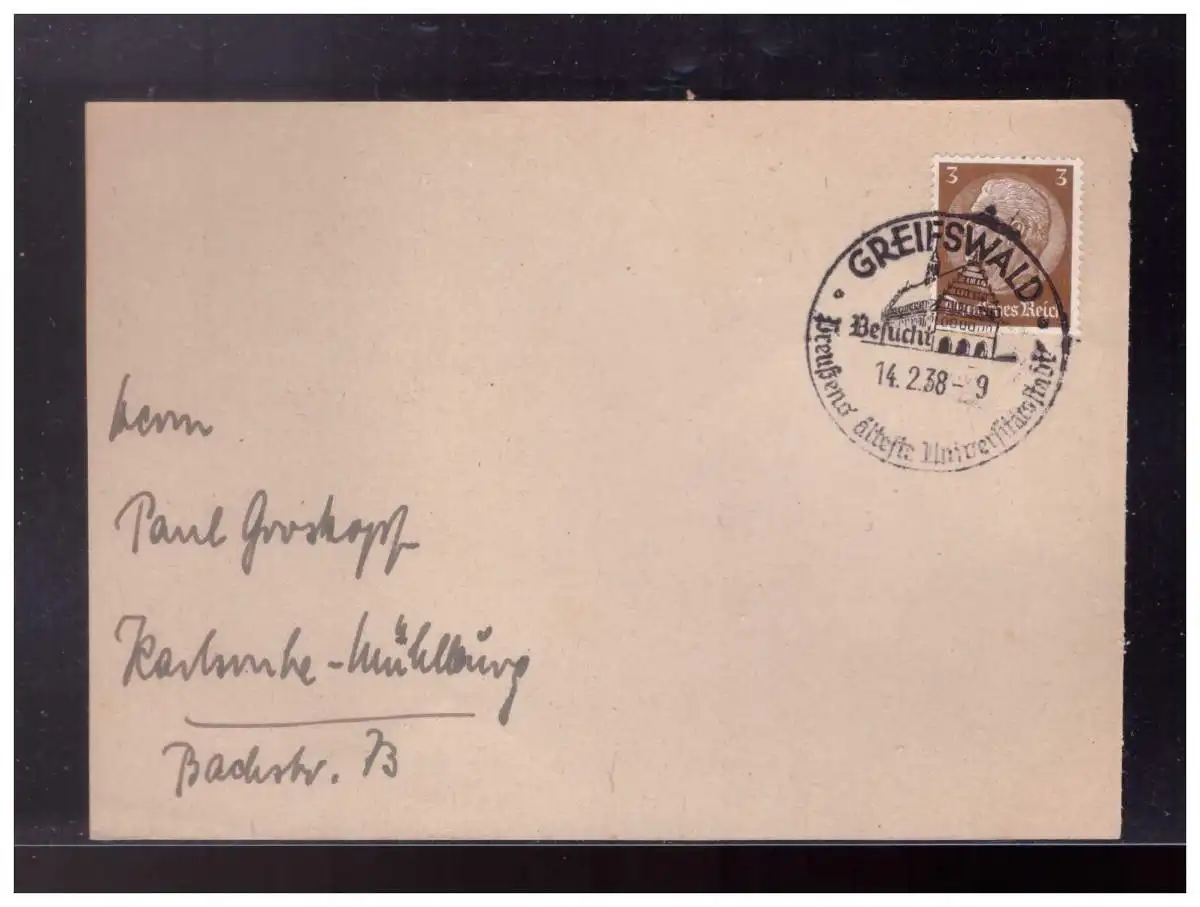 3 3
Deutsches Reich
GREIFSWALD
Besucht
14.2.38-9
Preußens älteste Universitätsstadt
Herrn
Paul Groskopf
Karlsruhe-Mühlburg
Bachstr. 73